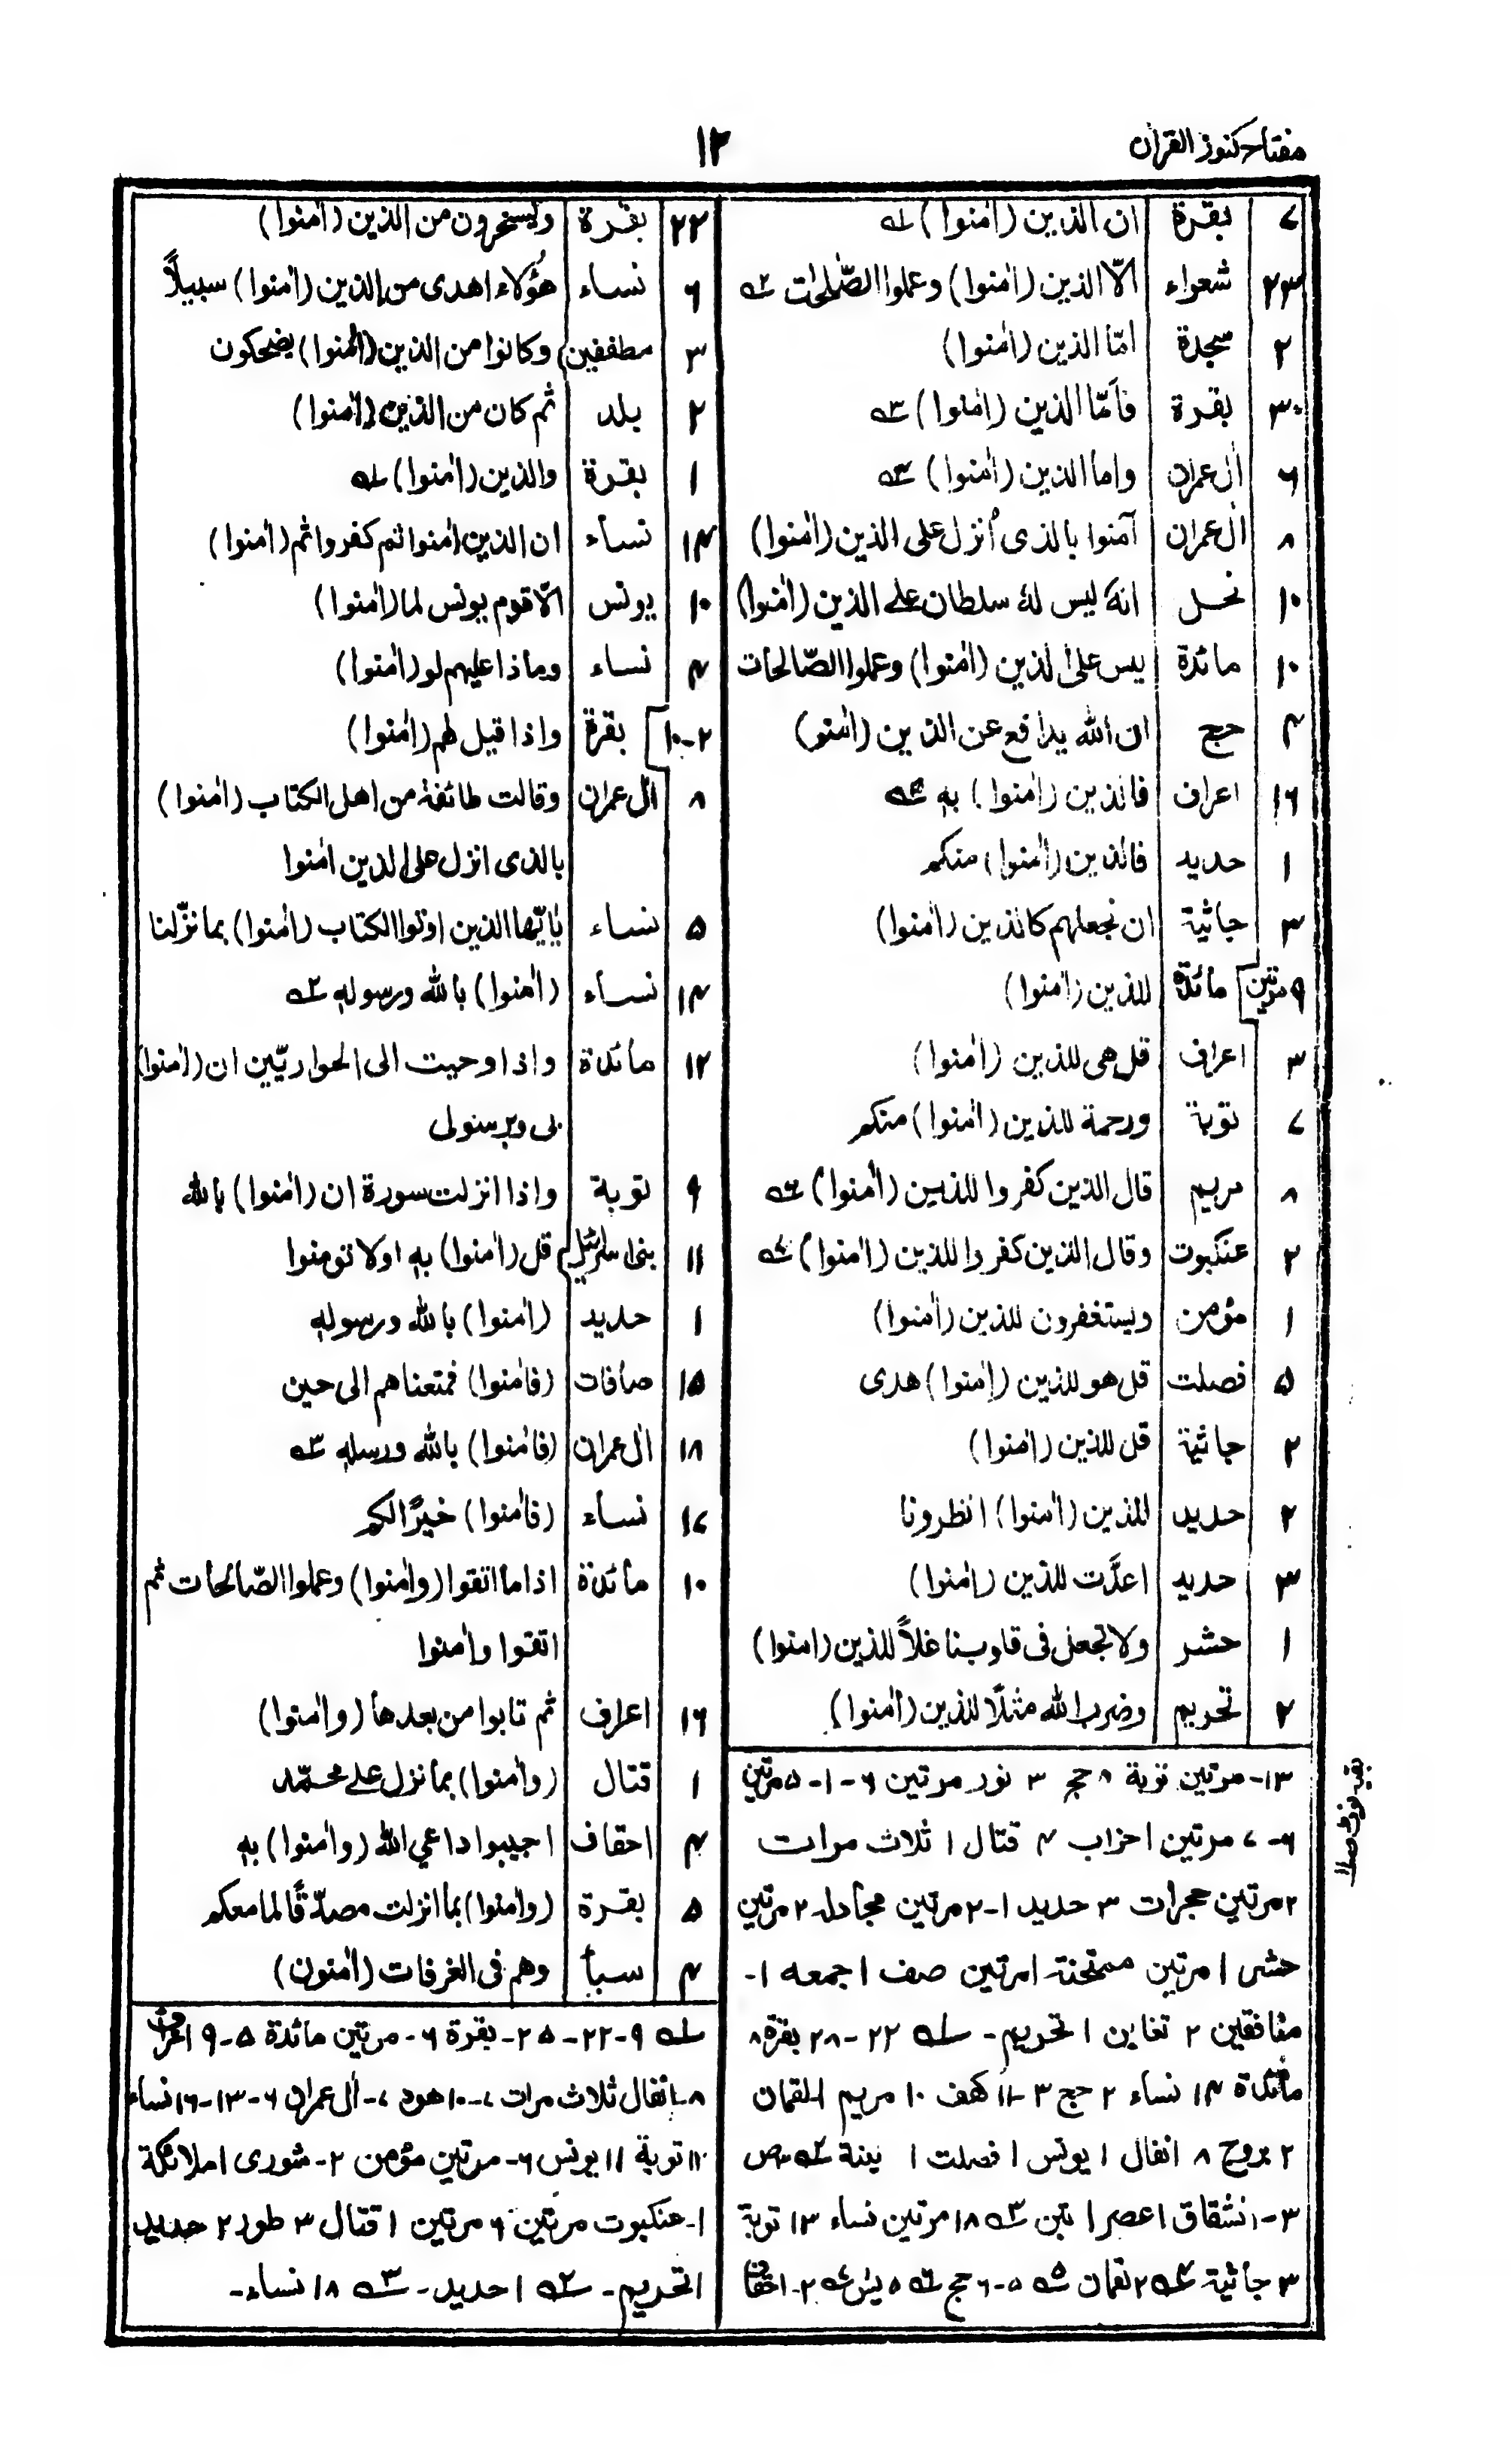 مفتاح کنوز القرآن
۱۲
۷ بقرة ان الذین (اٰمنوا) ؎۱
۲۳ شعراء الّا الذین (اٰمنوا) وعملوا الصّٰلحٰت ؎۲
۲ سجدة امّا الذین (اٰمنوا)
۳ بقرة فأمّا الذین (اٰمنوا) ؎۳
۶ اٰل عمران واما الذین (اٰمنوا) ؎۳
۸ اٰل عمران آمنوا بالذی أنزل علی الذین (اٰمنوا)
۱۰ نحل انهٗ لیس لهٗ سلطان علے الذین (اٰمنوا)
۱۰ مائدة لیس علی الذین (اٰمنوا) وعملوا الصّالحات
۴ حج ان الله یدافع عن الذین (اٰمنو)
۱۶ اعراف فالذین (اٰمنوا) بهٖ ؎۴
۱ حدید فالذین (اٰمنوا) منکم
۳ جاثیة ان نجعلهم کالذین (اٰمنوا)
۹ مرتین مائدة للذین (اٰمنوا)
۳ اعراف قل هی للذین (اٰمنوا)
۷ توبة ورحمة للذین (اٰمنوا) منکم
۸ مریم قال الذین کفروا للذین (اٰمنوا) ؎۶
۲ عنکبوت وقال الذین کفروا للذین (اٰمنوا) ؎۷
۱ مؤمن ویستغفرون للذین (اٰمنوا)
۵ فصلت قل هو للذین (اٰمنوا) هدی
۲ جاثیة قل للذین (اٰمنوا)
۲ حدید للذین (اٰمنوا) انظرونا
۳ حدید اعدّت للذین (اٰمنوا)
۱ حشر ولا تجعل فی قلوبنا غلاً للذین (اٰمنوا)
۲ تحریم وضرب الله مثلًا للذین (اٰمنوا)
۱۳- مرتین توبة ۸ حج ۳ نور مرتین ۶-۱-۵ مرتین
۶-۷ مرتین احزاب ۴ قتال ۱ ثلاث مرات
۲ مرتین حجرات ۳ حدید ۱-۲ مرتین مجادله ۲ مرتین
حشر ۱ مرتین ممتحنة ۱ مرتین صف ۱ جمعه ۱-
منافقین ۲ تغابن ۱ تحریم- ؎۱ ۲۲-۲۸ بقرة ۸
مائدة ۱۴ نساء ۲ حج ۳-۱۱ کهف ۱۰ مریم لقمان
۲ بروج ۸ انفال ۱ یونس ۱ فصلت ۱ بینة ؎۲ ص
۳-۱ نشقاق ۱ عصر ۱ تین ؎۳ ۱۸ مرتین نساء ۱۳ توبة
۳ جاثیة ؎۴ ۲ لقمان ؎۵ ۵-۶ حج ؎۶ ۵ یٰس ؎۷ ۲-احقاف
بقیہ نوٹ صلا
۲۲ بقرة ویسخرون من الذین (اٰمنوا)
۶ نساء هٰؤلاء اهدی من الذین (اٰمنوا) سبیلاً
۳ مطففین وکانوا من الذین (اٰمنوا) یضحکون
۲ بلد ثم کان من الذین (اٰمنوا)
۱ بقرة والذین (اٰمنوا) ؎۱
۱۴ نساء ان الذین اٰمنوا ثم کفروا ثم (اٰمنوا)
۱۰ یونس الّا قوم یونس لما (اٰمنوا)
۴ نساء وماذا علیهم لو (اٰمنوا)
۲-۱۰ بقرة واذا قیل لهم (اٰمنوا)
۸ اٰل عمران وقالت طائفة من اهل الکتاب (اٰمنوا)
بالذی انزل علی الذین اٰمنوا
۵ نساء یٰایّها الذین اوتوا الکتاب (اٰمنوا) بما نزّلنا
۱۴ نساء (اٰمنوا) بالله ورسوله ؎۲
۱۲ مائدة واذ اوحیت الی الحواریّین ان (اٰمنوا)
بی وبرسولی
۹ توبة واذا انزلت سورة ان (اٰمنوا) بالله
۱۱ بنی اسرائیل قل (اٰمنوا) بهٖ اولا تومنوا
۱ حدید (اٰمنوا) بالله ورسولهٖ
۱۵ صافات (فاٰمنوا) فمتعناهم الی حین
۱۸ اٰل عمران (فاٰمنوا) بالله ورسلهٖ ؎۳
۱۷ نساء (فاٰمنوا) خیرًا لکم
۱۰ مائدة اذا ما اتقوا (واٰمنوا) وعملوا الصّالحات ثم
اتقوا واٰمنوا
۱۶ اعراف ثم تابوا من بعدها (واٰمنوا)
۱ قتال (واٰمنوا) بما نزل علے محمّد
۴ احقاف اجیبوا داعی الله (واٰمنوا) بهٖ
۵ بقرة (واٰمنوا) بما انزلت مصدّقًا لما معکم
۴ سبأ وهم فی الغرفات (اٰمنون)
؎۱ ۹-۲۲-۲۵- بقرة ۶- مرتین مائدة ۵-۹ اعراف
۸-۱ نفال ثلاث مرات ۷-۱۰ هود ۷- اٰل عمران ۶-۱۳-۱۶ نساء
۱۱ توبة ۱۱ یونس ۶- مرتین مؤمن ۲- شوری ۱ ملائکة
۱- عنکبوت مرتین ۶ مرتین ۱ قتال ۳ طور ۲ حدید
۱ تحریم- ؎۲ ۱ حدید- ؎۳ ۱۸ نساء-